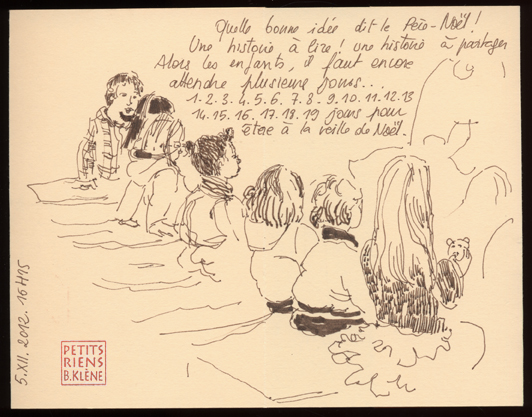 Quelle bonne idée dit le Père-Noël !
Une histoire à lire ! une histoire à partager
Alors les enfants, il faut encore
attendre plusieurs jours...
1.2.3.4.5.6.7.8.9.10.11.12.13
14.15.16.17.18.19 jours pour
être à la veille de Noël.
5.XII.2012. 16H15
PETITS
RIENS
B.KLÈNE